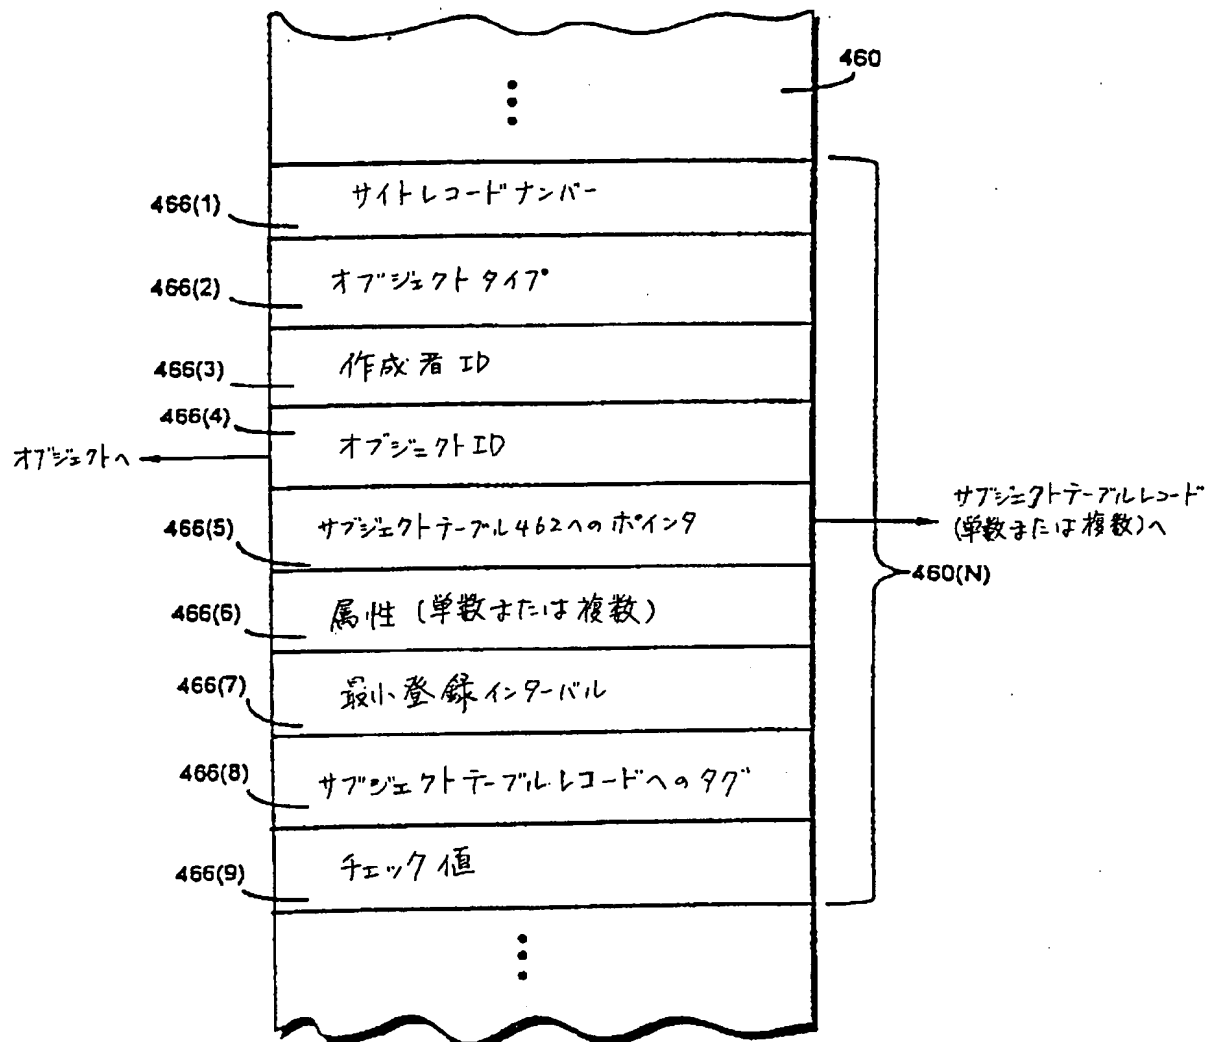 460
466(1)
サイトレコードナンバー
466(2)
オブジェクトタイプ
466(3)
作成者 ID
466(4)
オブジェクト ID
オブジェクトへ
466(5)
サブジェクトテーブル462へのポインタ
サブジェクトテーブルレコード
(単数または複数)へ
460(N)
466(6)
属性 (単数または複数)
466(7)
最小登録インターバル
466(8)
サブジェクトテーブルレコードへのタグ
466(9)
チェック値